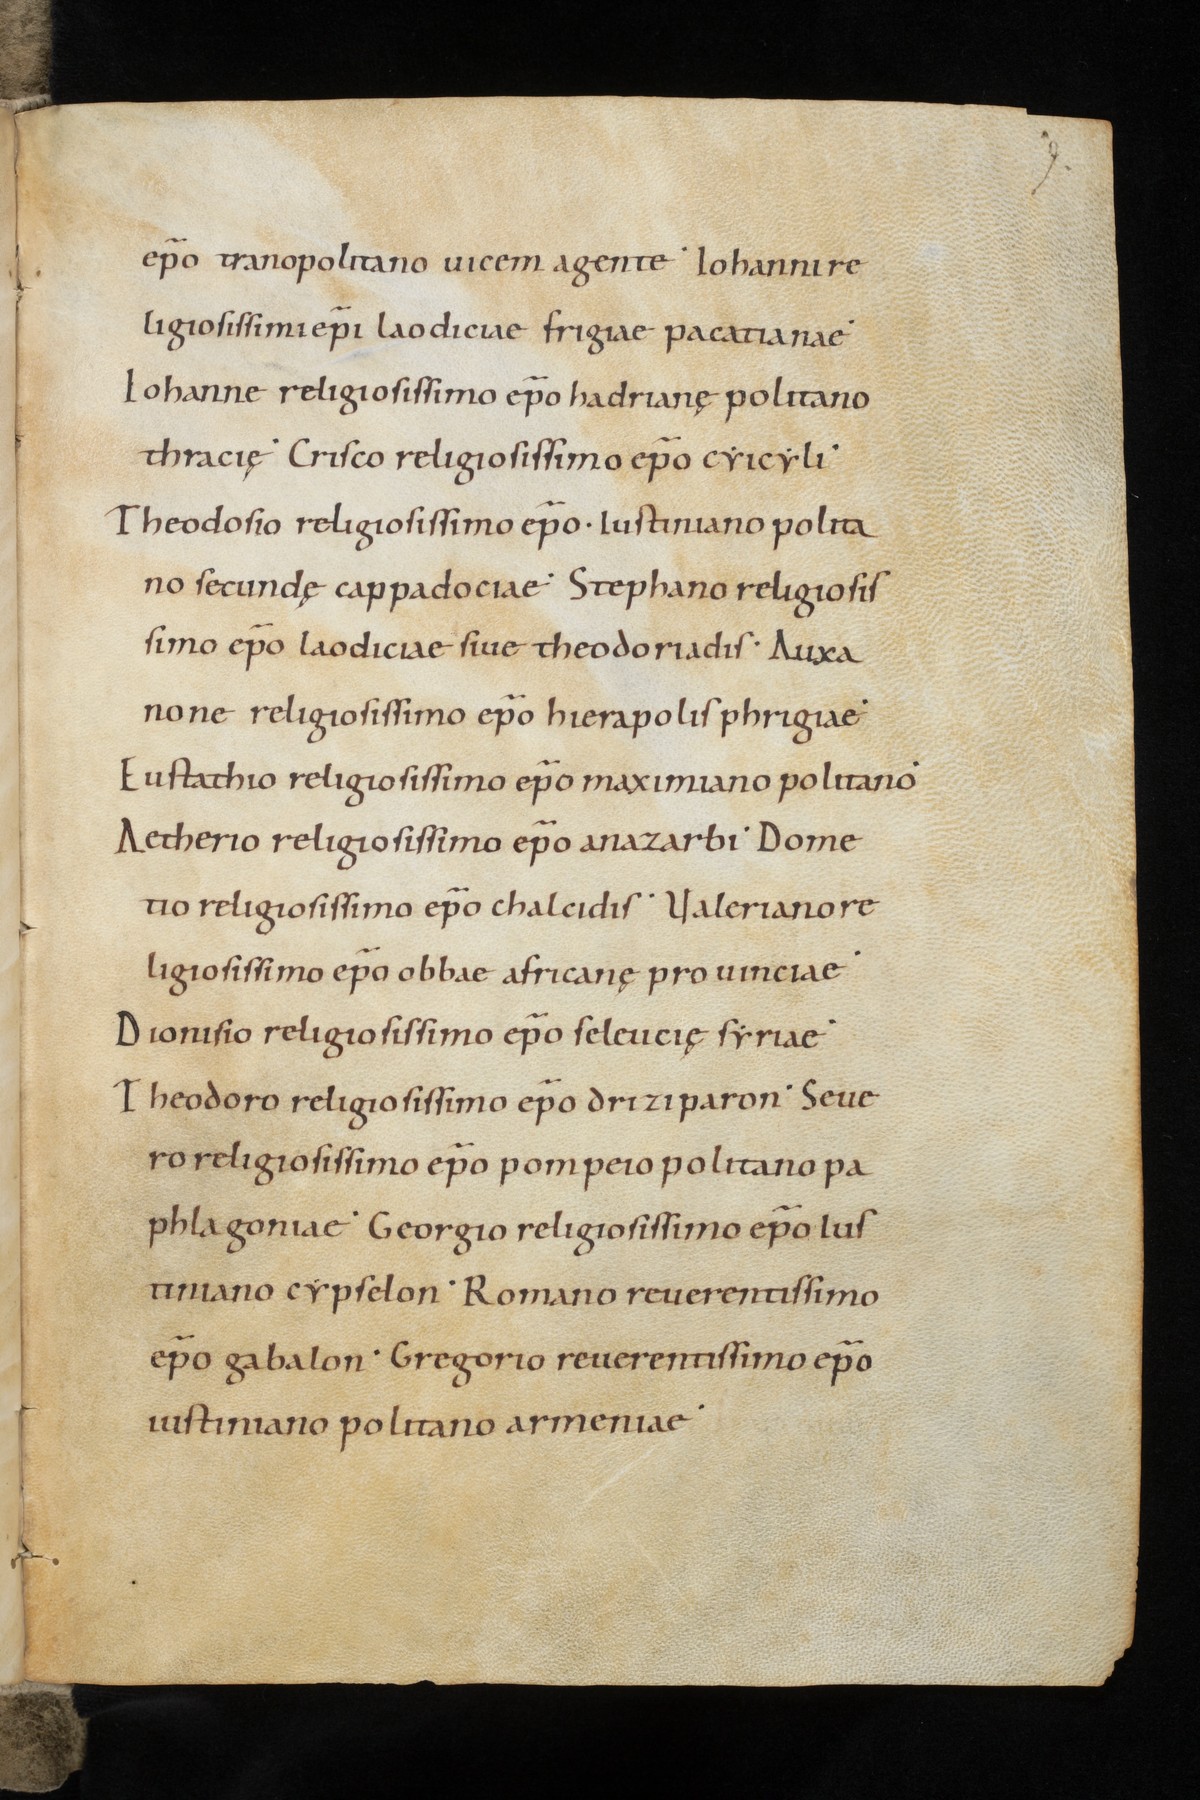 9.
ep̄o tranopolitano uicem agente· Iohanni re
ligiosissimi ep̄i laodiciae frigiae pacatianae·
Iohanne religiosissimo ep̄o hadrianę politano
thracię· Crisco religiosissimo ep̄o cẏicẏli·
Theodosio religiosissimo ep̄o· Iustiniano polita
no secundę cappadociae· Stephano religiosis
simo ep̄o laodiciae siue theodoriadis· Auxa
none religiosissimo ep̄o hierapolis phrigiae·
Eustathio religiosissimo ep̄o maximiano politano·
Aetherio religiosissimo ep̄o anazarbi· Dome
tio religiosissimo ep̄o chalcidis· Valeriano re
ligiosissimo ep̄o obbae africanę prouinciae·
Dionisio religiosissimo ep̄o seleucię sẏriae·
Theodoro religiosissimo ep̄o driziparon· Seue
ro religiosissimo ep̄o pompeio politano pa
phlagoniae· Georgio religiosissimo ep̄o Ius
tiniano cẏpselon· Romano reuerentissimo
ep̄o gabalon· Gregorio reuerentissimo ep̄o
iustiniano politano armeniae·